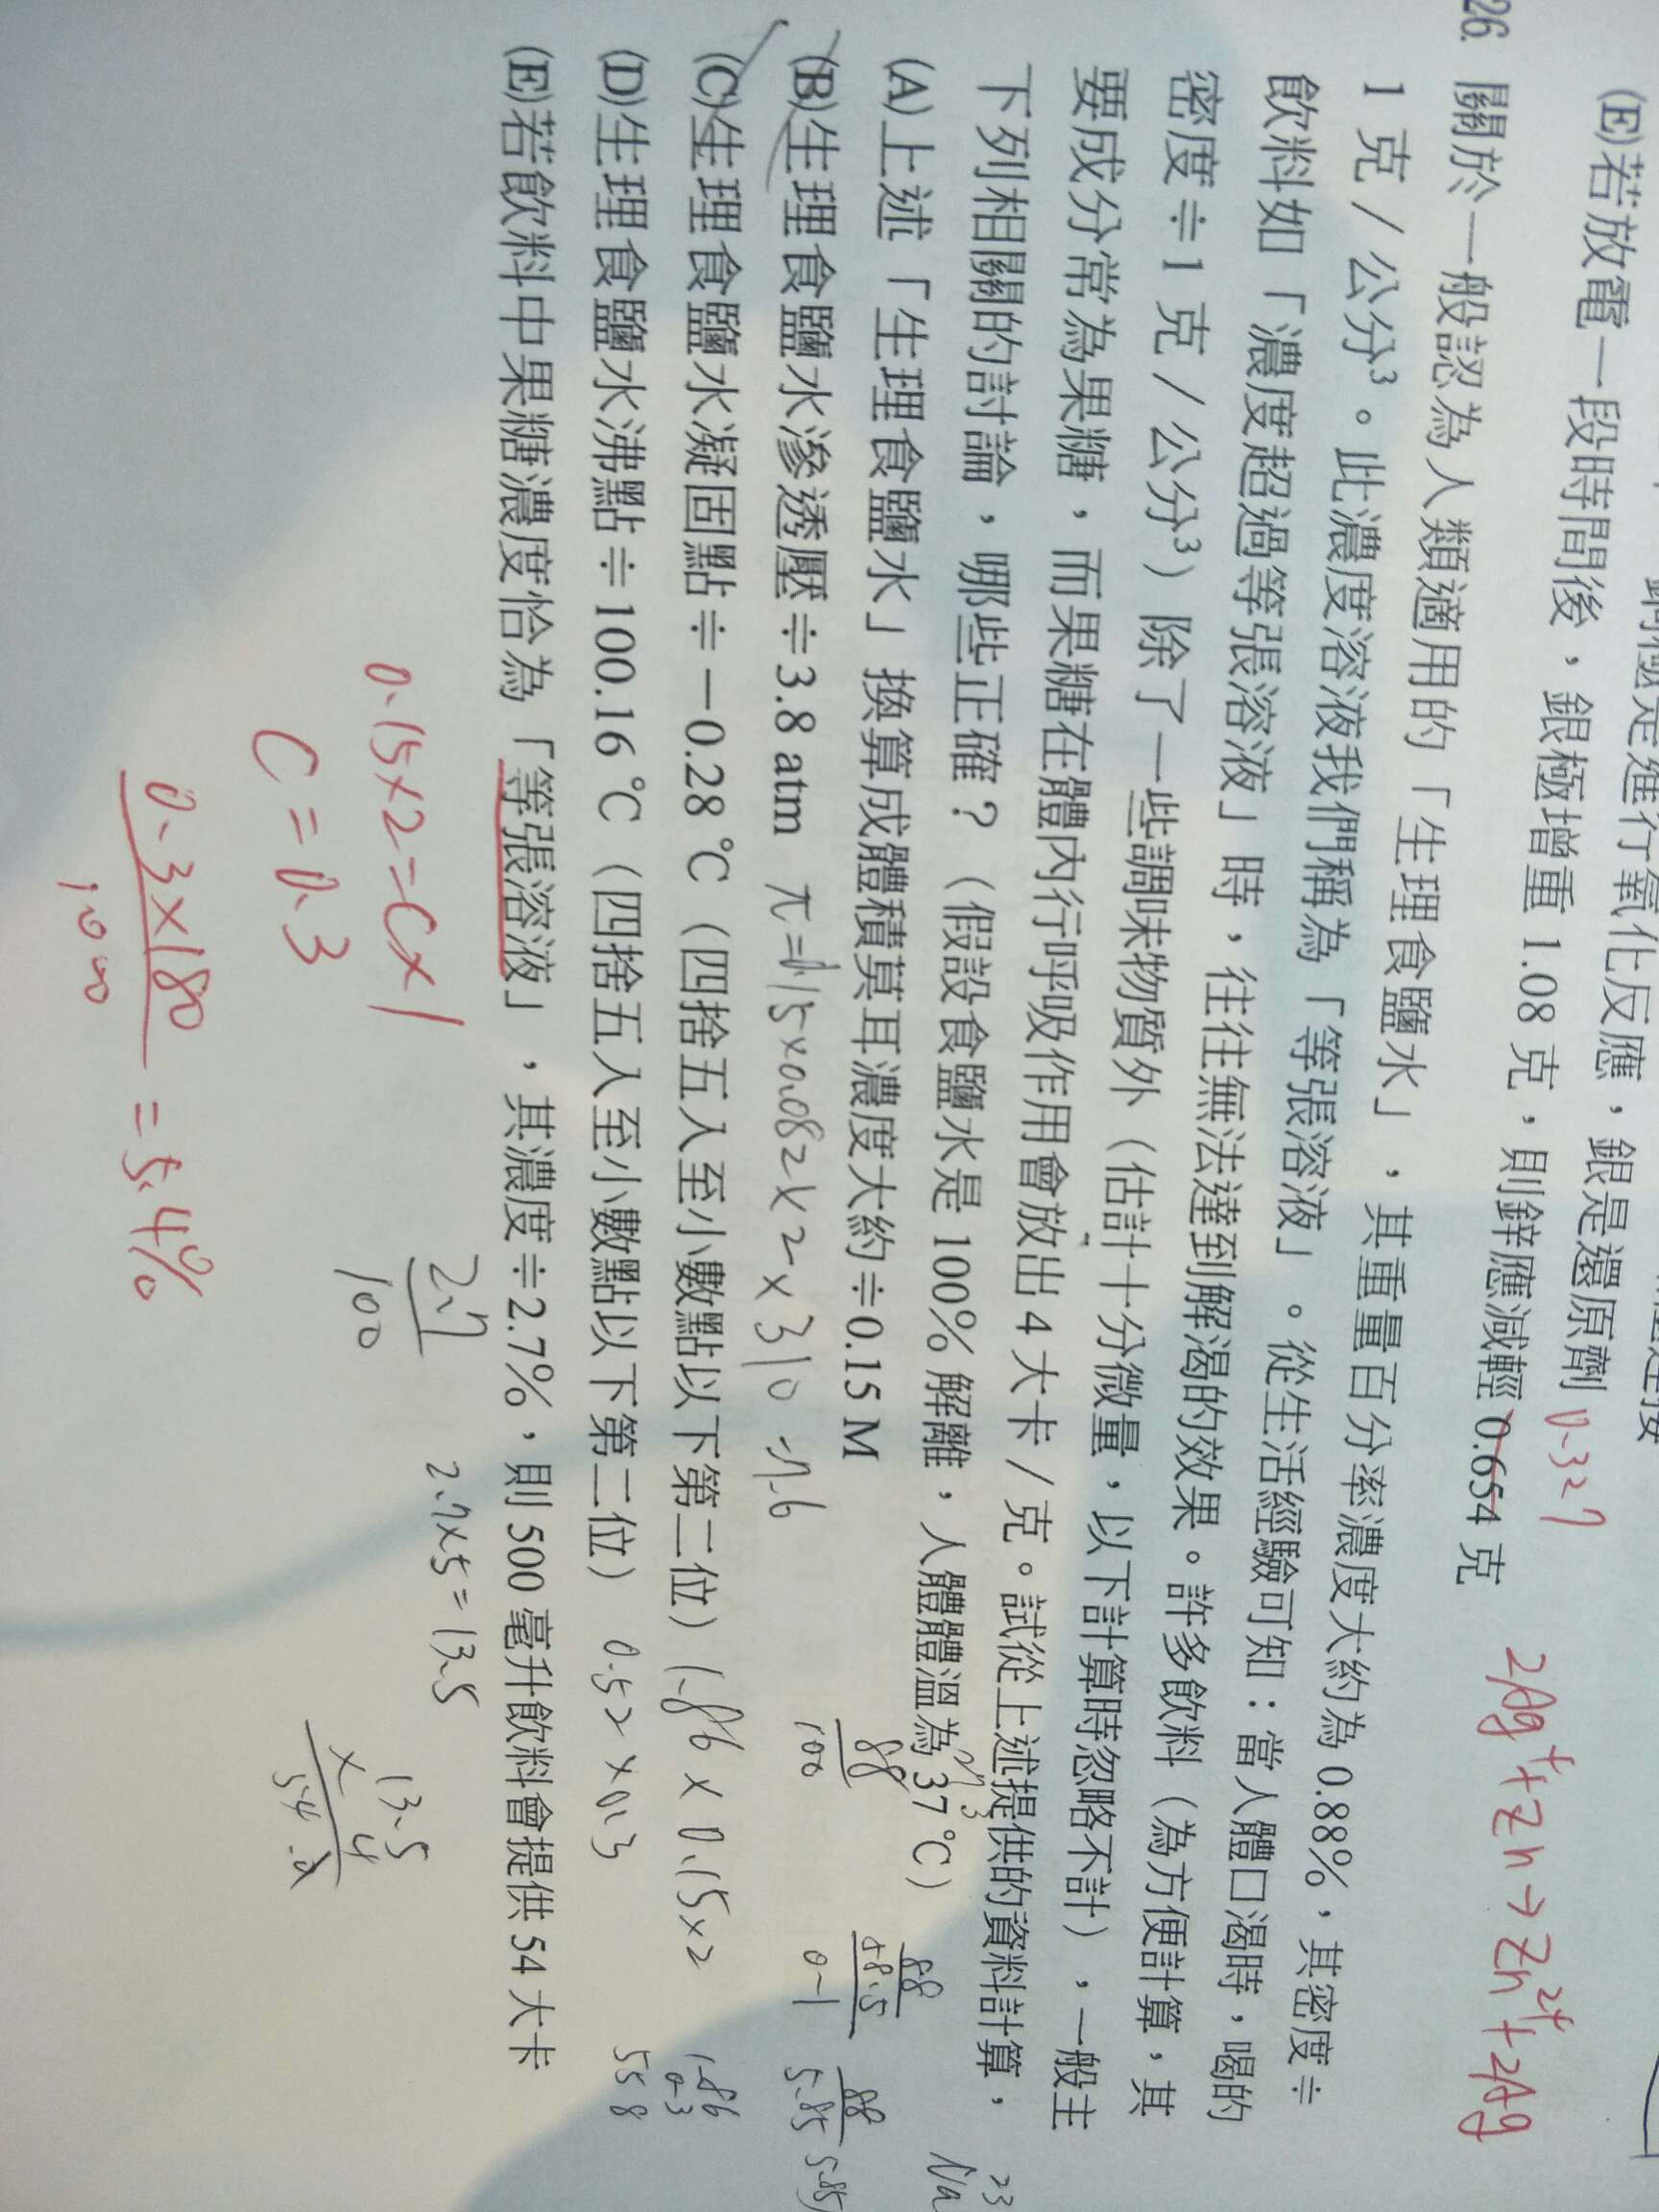 (E)若放電一段時間後，銀極增重 1.08 克，則鋅應減輕 0.654 克
0.327
2Ag⁺+Zn→Zn²⁺+2Ag
26. 關於一般認為人類適用的「生理食鹽水」，其重量百分率濃度大約為 0.88%，其密度≑
1 克／公分³。此濃度溶液我們稱為「等張溶液」。從生活經驗可知：當人體口渴時，喝的
飲料如「濃度超過等張溶液」時，往往無法達到解渴的效果。許多飲料（為方便計算，其
密度≑1 克／公分³）除了一些調味物質外（估計十分微量，以下計算時忽略不計），一般主
要成分常為果糖，而果糖在體內行呼吸作用會放出 4 大卡／克。試從上述提供的資料計算，
下列相關的討論，哪些正確？（假設食鹽水是 100% 解離，人體體溫為 37 ℃）
(A)上述「生理食鹽水」換算成體積莫耳濃度大約≑0.15 M
(B)生理食鹽水滲透壓≑3.8 atm
(C)生理食鹽水凝固點≑－0.28 ℃（四捨五入至小數點以下第二位）
1.86×0.15×2
(D)生理食鹽水沸點≑100.16 ℃（四捨五入至小數點以下第二位）
0.52×0.3
(E)若飲料中果糖濃度恰為「等張溶液」，其濃度≑2.7%，則 500 毫升飲料會提供 54 大卡
0.15×2=C×1
C=0.3
0.3×180
=5.4%
2.7
100
2.7×5=13.5
13.5
× 4
88
100
88
58.5
0.1
88
5.85
1.86
0.3
558
23
Na